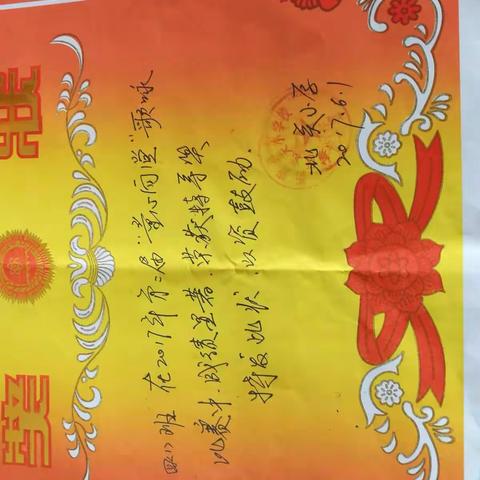 奖状
班 在2017年第二届"童心向党"歌咏
比赛中,成绩显著,荣获特等奖
特发此状,以资鼓励.
小学
2017.6.1